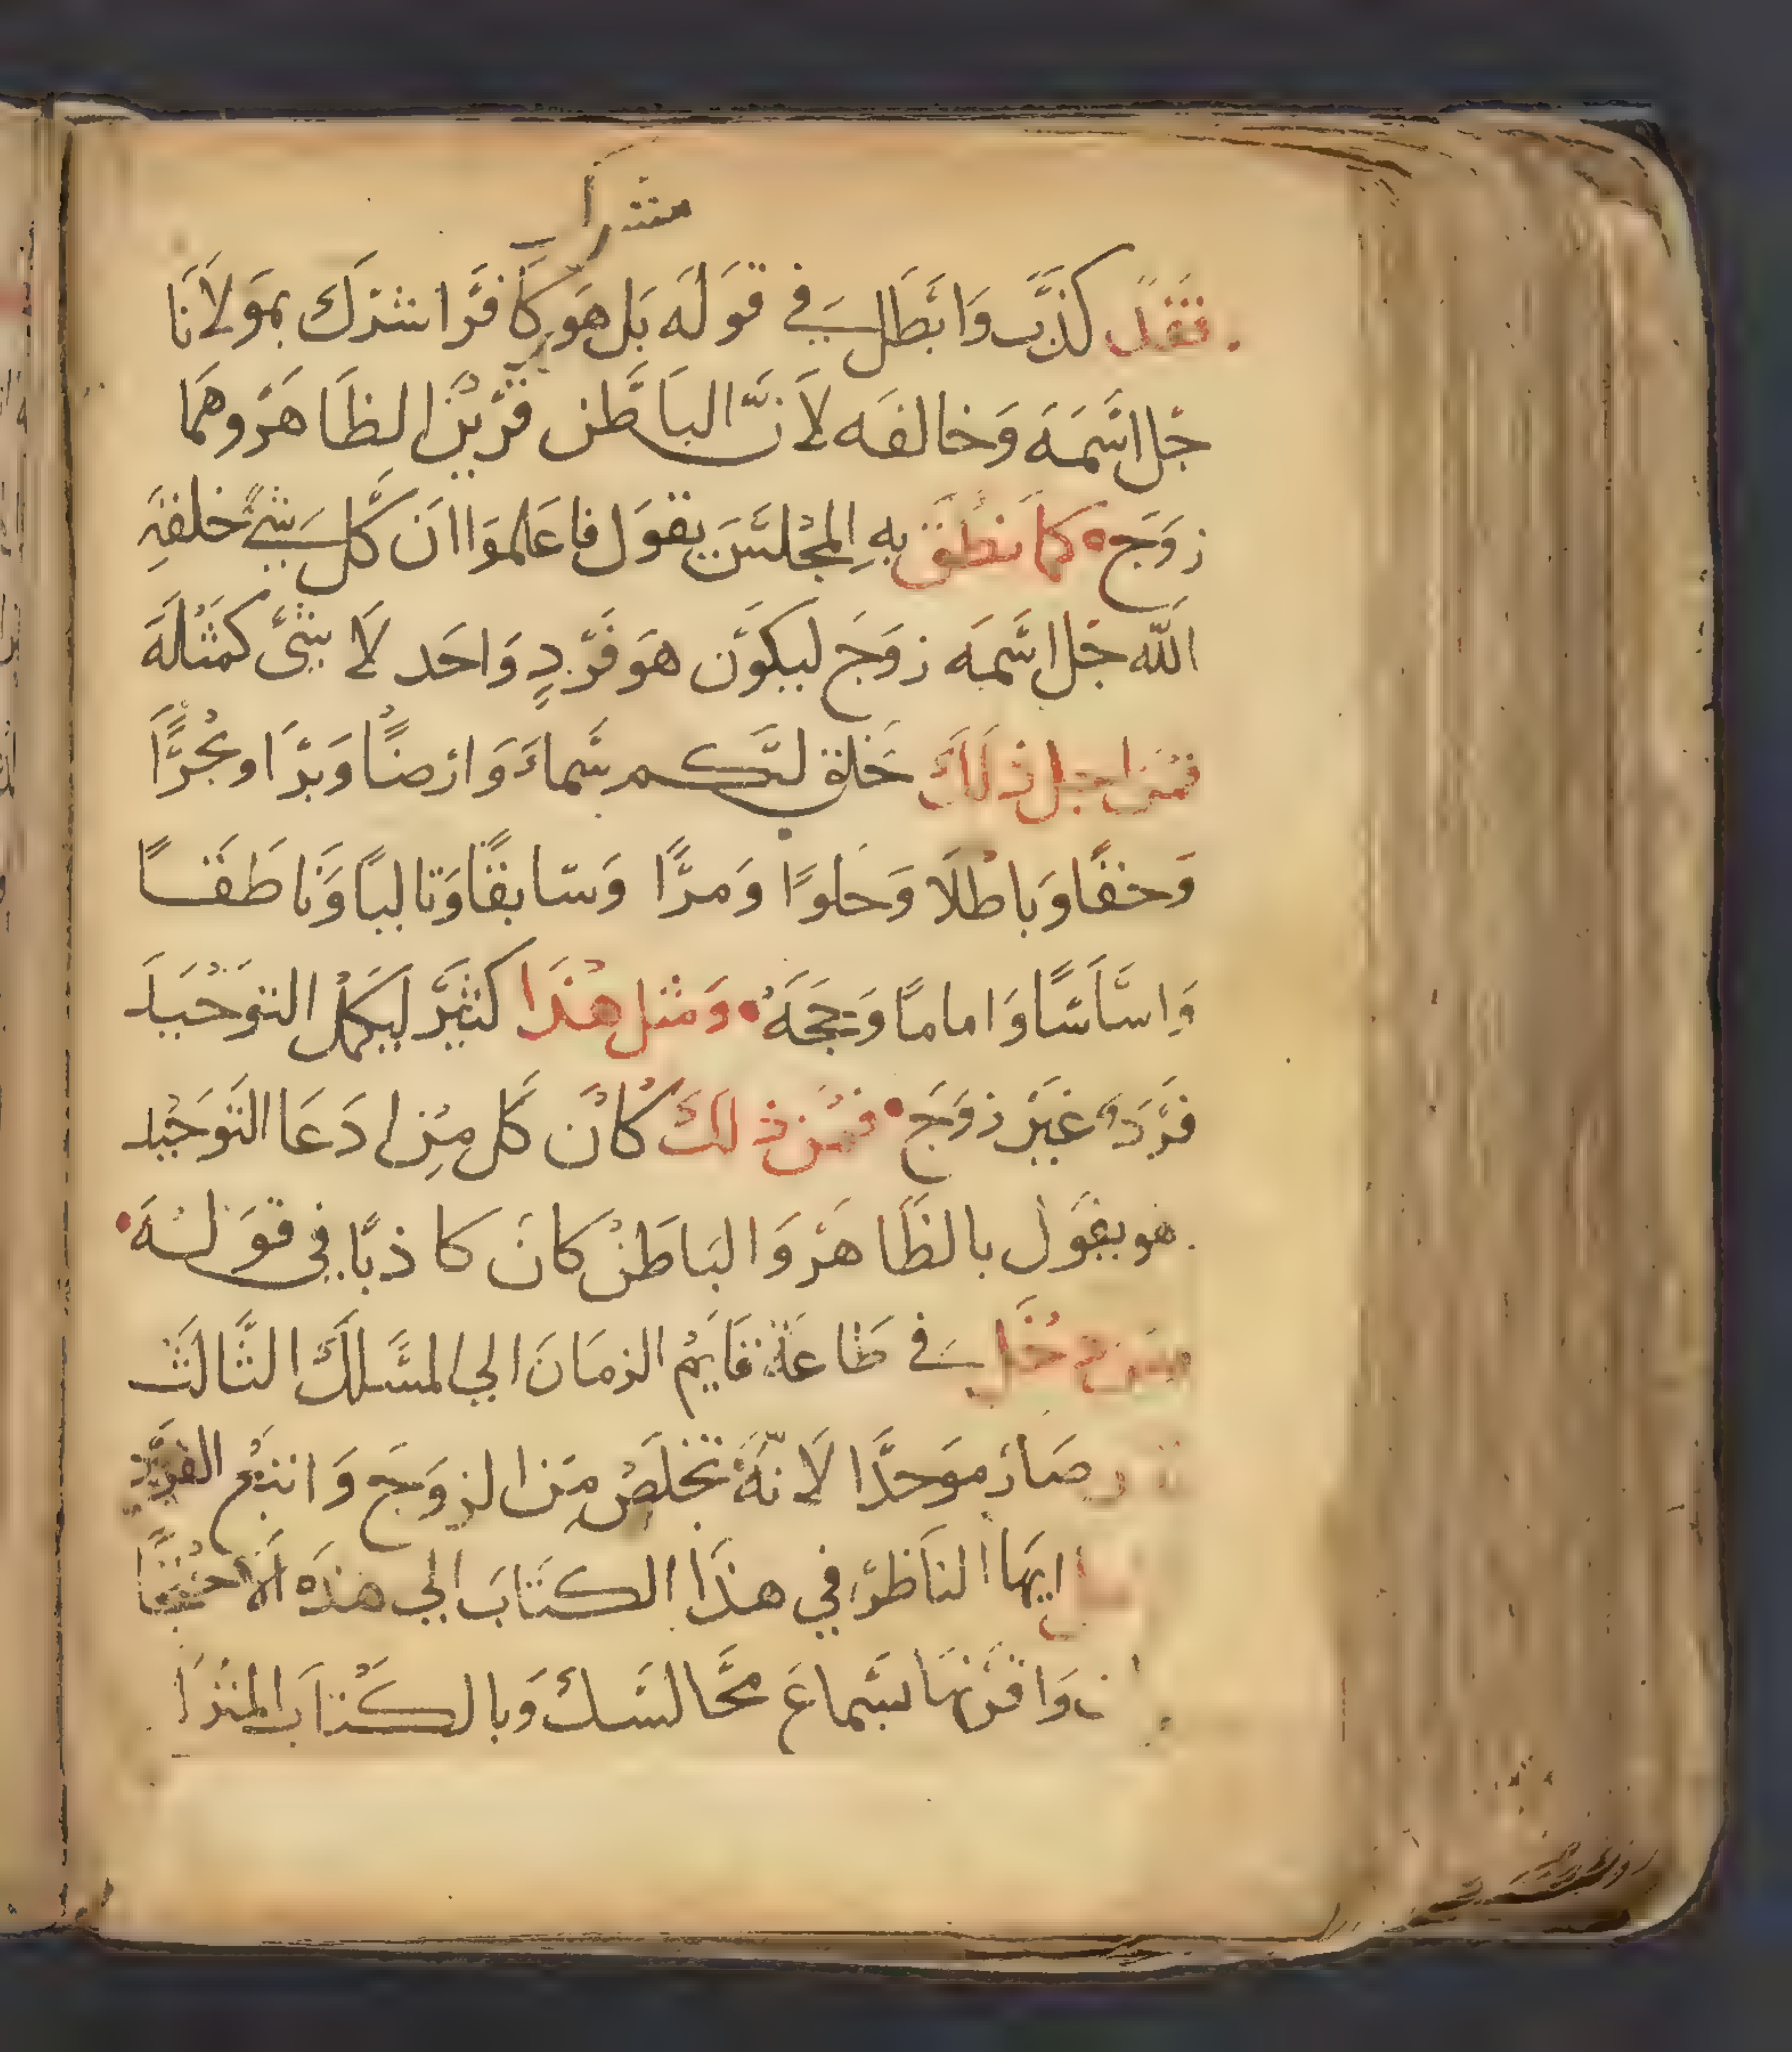 مشرك
فقد كذب وابطل في قوله بل هو كافر اشرك بمولانا
جل اسمه وخالفه لان الباطن قرين الظاهر وهما
زوج كما نطق به المجلس يقول فاعلموا ان كل شي خلقه
الله جل اسمه زوج ليكون هو فرد واحد لا شئ كمثله
فمن اجل ذلك خلق لكم سماء وارضا وبرا وبحرا
وحقا وباطلا وحلوا ومرا وسابقا وتاليا وناطقا
واساسا واماما وحجه ومثل هذا كثير ليكمل التوحيد
فرده غير زوج فمن ذلك كان كل من ادعا التوحيد
هو يقول بالظاهر والباطن كان كاذبا في قوله
ومن دخل في طاعة قايم الزمان الي المسلك الثالث
صار موحدا لانه تخلص من الزوج واتبع الفرد
ايها الناظر في هذا الكتاب الي هذه
واقرنها بسماع مجالسك وبالكتاب